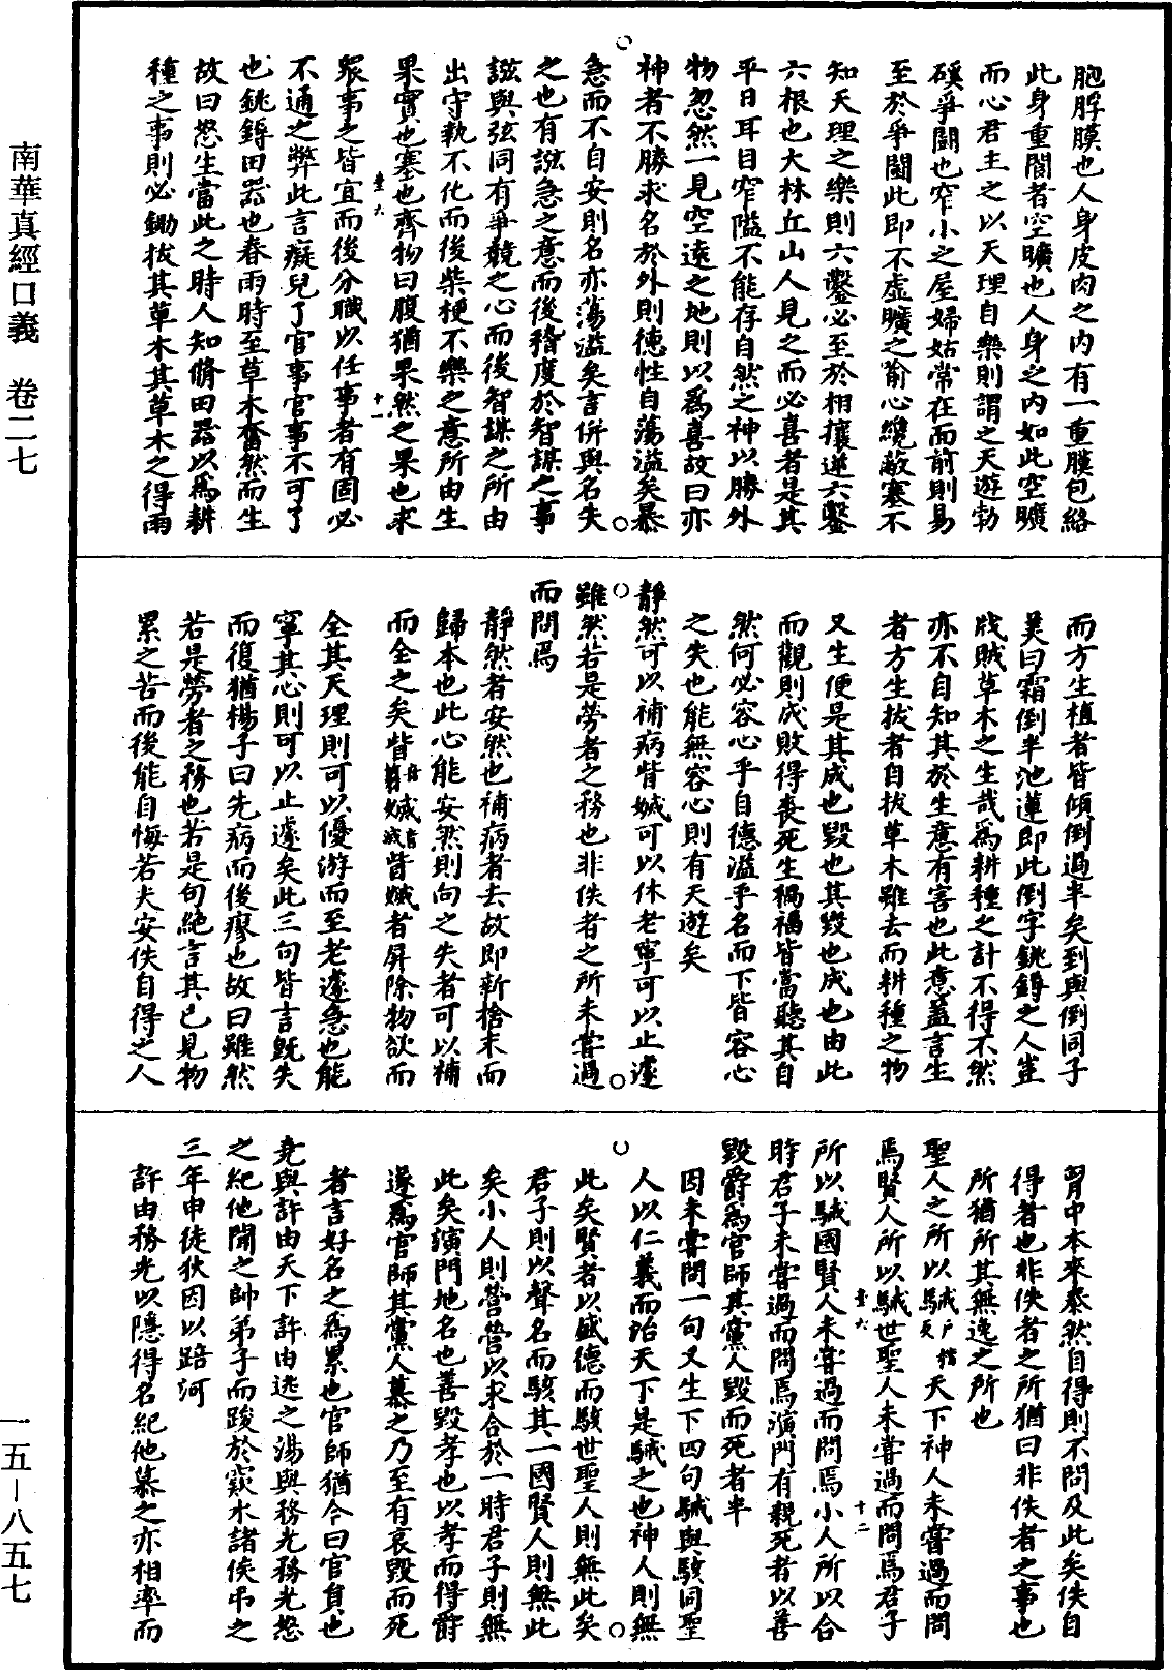 胞脬膜也人身皮肉之内有一重膜包絡
此身重閬者空曠也人身之内如此空曠
而心君主之以天理自樂則謂之天遊勃
磎爭鬪也窄小之屋婦姑常在面前則易
至於爭鬪此即不虛曠之喻心纔蔽塞不
知天理之樂則六鑿必至於相攘逆六鑿
六根也大林丘山人見之而必喜者是其
平日耳目窄隘不能存自然之神以勝外
物忽然一見空遠之地則以爲喜故曰亦
神者不勝求名於外則德性自蕩溢矣暴
急而不自安則名亦蕩溢矣言併與名失
之也有誸急之意而後稽度於智謀之事
誸與弦同有爭競之心而後智謀之所由
出守執不化而後柴梗不樂之意所由生
果實也塞也齊物曰腹猶果然之果也求
衆事之皆宜而後分職以任事者有固必
不通之弊此言癡兒了官事官事不可了
也銚鎒田器也春雨時至草木奮然而生
故曰怒生當此之時人知脩田器以爲耕
種之事則必鋤拔其草木其草木之得雨
而方生植者皆傾倒過半矣到與倒同子
美曰霜倒半池蓮即此倒字銚鎒之人豈
戕賊草木之生哉爲耕種之計不得不然
亦不自知其於生意有害也此意蓋言生
者方生拔者自拔草木雖去而耕種之物
又生便是其成也毀也其毀也成也由此
而觀則成敗得喪死生禍福皆當聽其自
然何必容心乎自德溢乎名而下皆容心
之失也能無容心則有天遊矣
靜然可以補病眥媙可以休老寧可以止遽
雖然若是勞者之務也非佚者之所未嘗過
而問焉
靜然者安然也補病者去故即新捨末而
歸本也此心能安然則向之失者可以補
而全之矣眥媙眥媙者屏除物欲而
全其天理則可以優游而至老遽急也能
寧其心則可以止遽矣此三句皆言既失
而復猶楊子曰先病而後瘳也故曰雖然
若是勞者之務也若是句絶言其已見物
累之苦而後能自悔若夫安佚自得之人
胷中本來泰然自得則不問及此矣佚自
得者也非佚者之所猶曰非佚者之事也
所猶所其無逸之所也
聖人之所以駴天下神人未嘗過而問
焉賢人所以駴世聖人未嘗過而問焉君子
所以駴國賢人未嘗過而問焉小人所以合
時君子未嘗過而問焉演門有親死者以善
毀爵爲官師其黨人毀而死者半
因未嘗問一句又生下四句駴與駭同聖
人以仁義而治天下是駴之也神人則無
此矣賢者以盛德而駭世聖人則無此矣
君子則以聲名而駭其一國賢人則無此
矣小人則營營以求合於一時君子則無
此矣演門地名也善毀孝也以孝而得爵
遂爲官師其黨人慕之乃至有哀毀而死
者言好名之爲累也官師猶今曰官員也
堯與許由天下許由逃之湯與務光務光怒
之紀他聞之帥弟子而踆於窾水諸侯弔之
三年申徒狄因以踣河
許由務光以隱得名紀他慕之亦相率而
南華真經口義　卷二七
一五－八五七